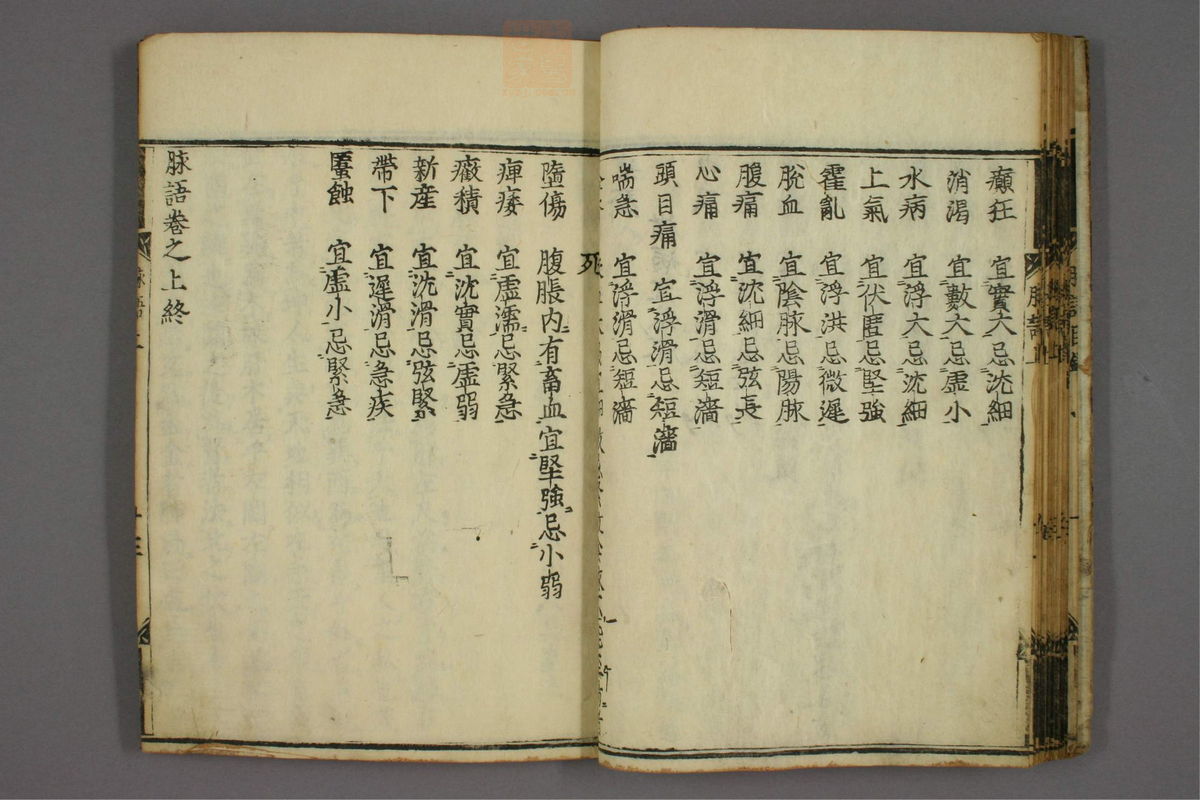 癲狂　宜實大忌沈細
消渴　宜數大忌虛小
水病　宜浮大忌沈細
上氣　宜伏匿忌堅強
霍亂　宜浮洪忌微遲
脫血　宜陰脉忌陽脉
腹痛　宜沈細忌弦長
心痛　宜浮滑忌短濇
頭目痛　宜浮滑忌短濇
喘急　宜浮滑忌短濇
死
墮傷　腹脹內有畜血宜堅強忌小弱
痺痿　宜虛濡忌緊急
癥積　宜沈實忌虛弱
新産　宜沈滑忌弦緊
帶下　宜遲滑忌急疾
䘌蝕　宜虛小忌緊急
脉語卷之上終